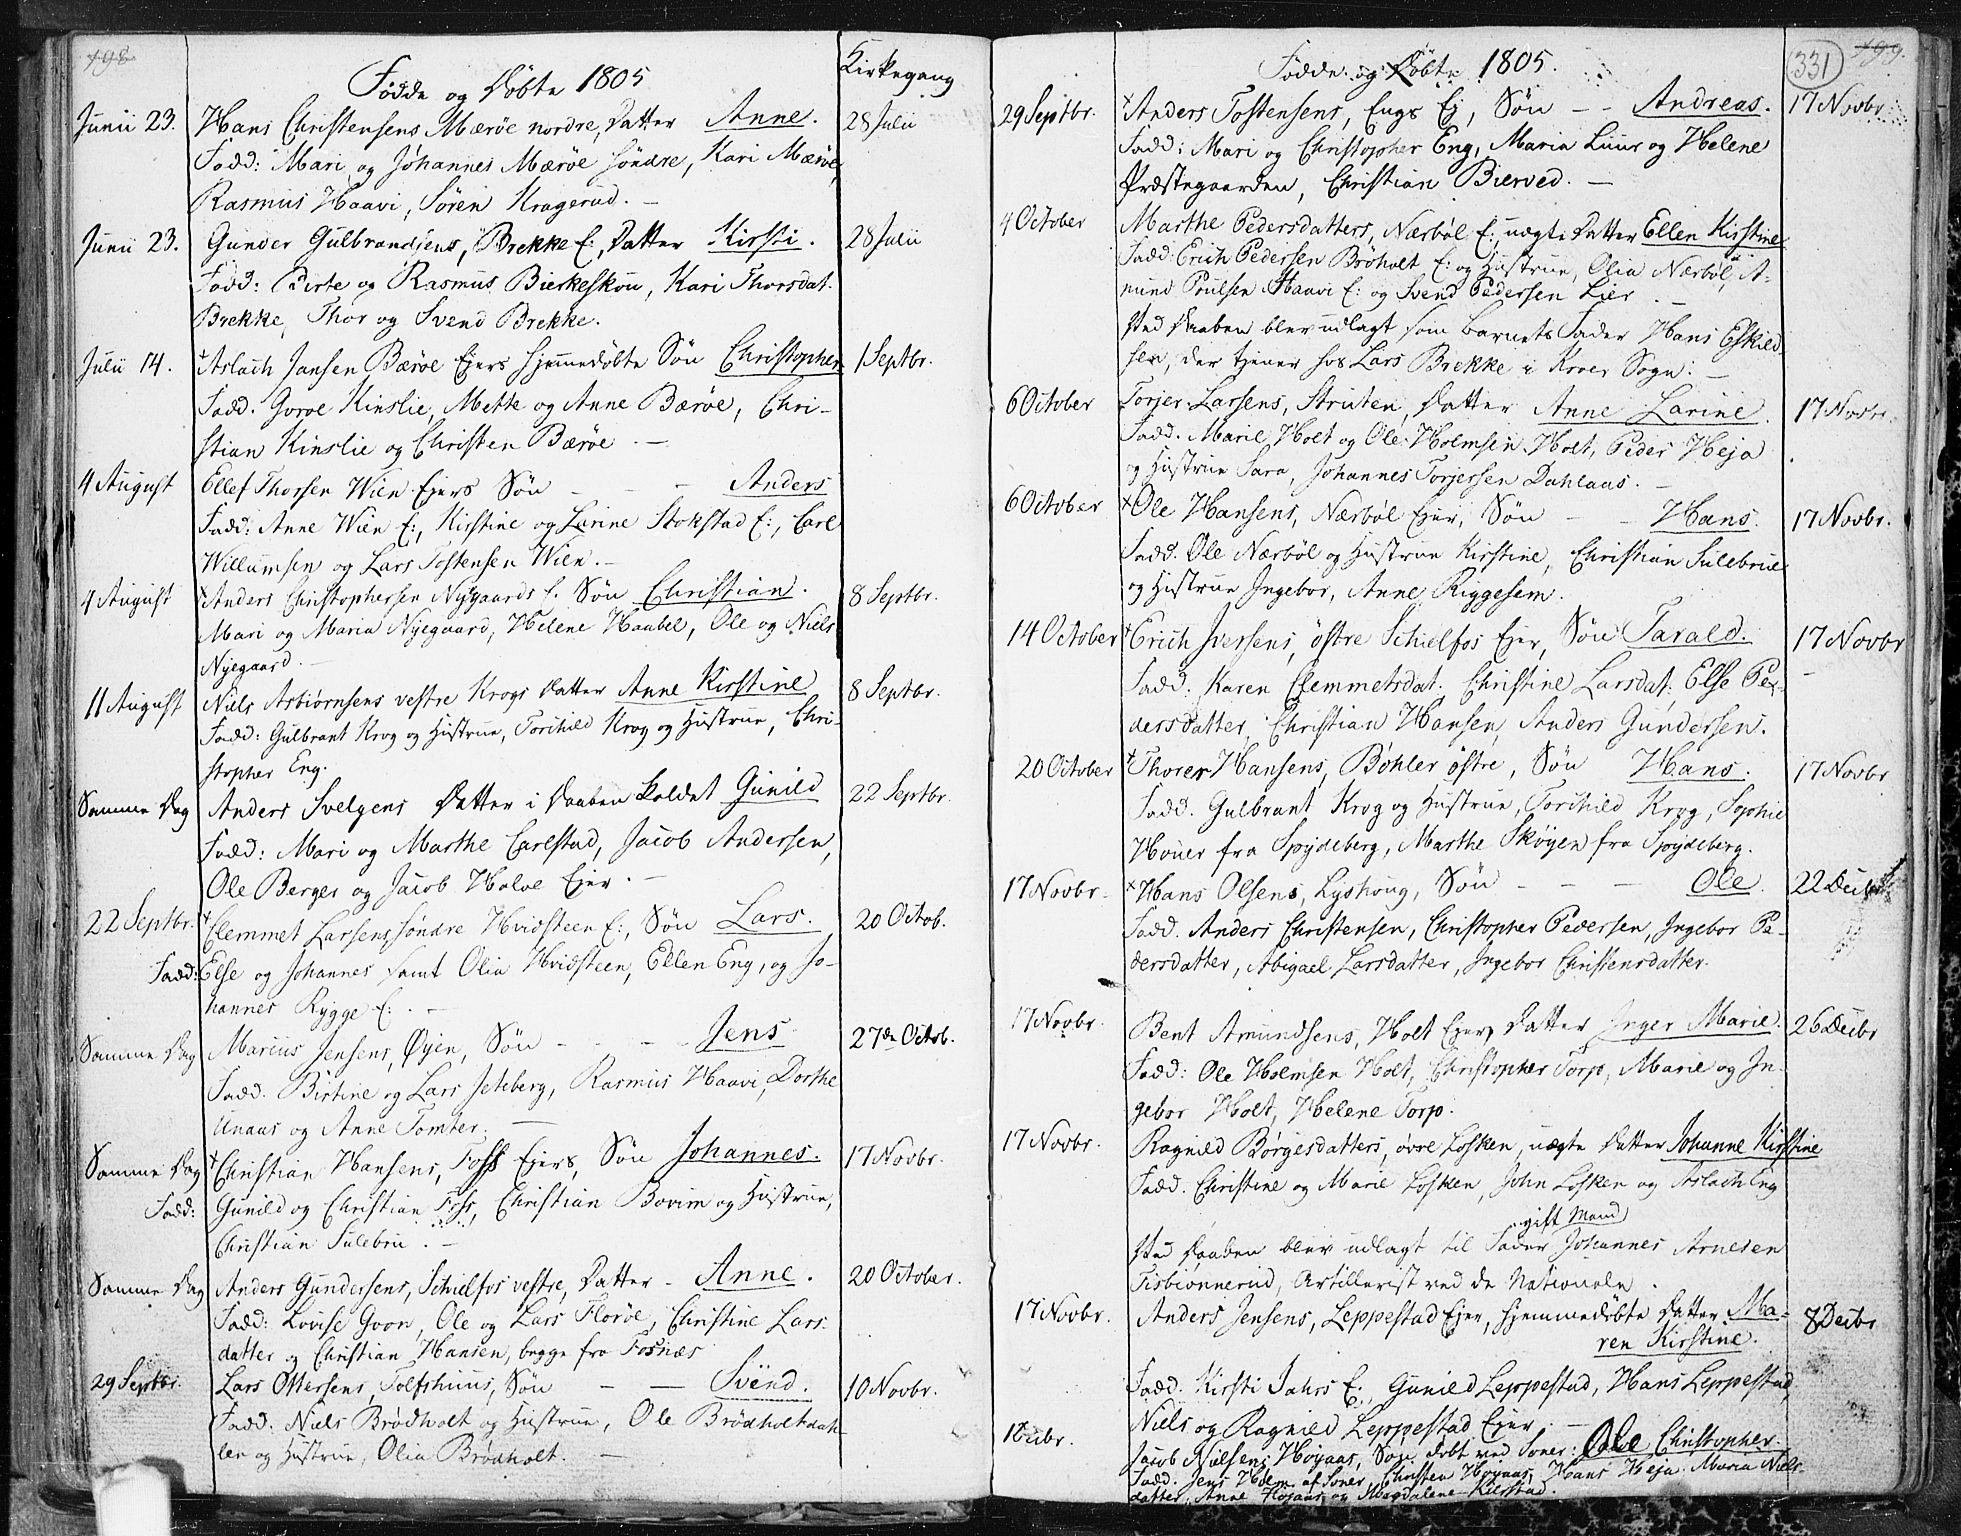 198
Fødde og Døbte 1805
Kirkegang
Junii 23. Hans Christensens Mærøe nordre, Datter Anne. 28 Julii
Fadd: Mari og Johannes Mærøe søndre, Kari Mærøe,
Rasmus Haavi, Søren Kragerud. –
Junii 23. Gunder Gulbrandsens, Brekke E:, Datter Kirsti. 28 Julii
Fadd: Birte og Rasmus Bierkeskou, Kari Thorsdat.
Brekke, Thor og Svend Brekke.
Julii 14. Aslach Jansen Bærøe Ejers hjemmedøbte Søn Christopher 1 Septbr.
Fadd. Goroe Kinslie, Mette og Anne Bærøe, Chri-
stian Kinslie og Christen Bærøe. –
4 August Ellef Thorsen Wien Ejers Søn – – – Anders
Fadd: Anne Wien E:, Kirstine og Larine Stokstad E:, Carl
Willumsen og Lars Tostensen Wien. –
4 August Anders Christophersen Nygaards E. Søn Christian. 8 Septbr.
Mari og Maria Nyegaard, Helene Haabel, Ole og Niels
Nyegaard. –
11 August Niels Asbiørnsens vestre Krogs Datter Anne Kirstine 8 Septbr.
Fadd: Gulbrant Krog og Hustrue, Torchild Krog og Hustrue, Chri-
stopher Eng.
Samme Dag Anders Svelgens Datter i Daaben kaldet Gunild 22 Septbr.
Fadd: Mari og Marthe Carlstad, Jacob Andersen,
Ole Berger og Jacob Holoe Ejer. –
22 Septbr. Clemmet Larsens søndre Hvidsteen E:, Søn Lars. 20 Octob.
Fadd: Else og Johannes samt Olia Hvidsteen, Ellen Eng, og Jo-
hannes Rygge E: . –
Samme Dag Marius Jensens, Øyen, Søn – – – Jens 27de Octob.
Fadd. Birtine og Lars Jeteberg, Rasmus Haavi, Dorthe
Unaas og Anne Tomter. –
Samme Dag Christian Hansens, Foss Ejers, Søn Johannes. 17 Novbr.
Fadd: Gunild og Christian Foss, Christian Bovim og Hustrue,
Christian Sulebru. –
Samme Dag Anders Gundersens, Schielfos vestre, Datter – Anne. 20 October.
Fadd: Lovise Gvon, Ole og Lars Florøe, Christine Lars-
datter og Christian Hansen, begge fra Fosnæs
29 Septbr. Lars Ottersens, Tolfshuus, Søn – – Svend. 10 Novbr.
Fadd: Niels Brødholt og Hustrue, Ole Brødholtdah-
len og Hustrue, Olia Brødholt. –
331 199.
Fødde og Døbte 1805.
29 Septbr. Anders Tostensens, Engs Ej, Søn – – Andreas. 17 Novbr.
Fadd: Mari og Christopher Eng, Maria Luur og Helene
Præstegaarden, Christian Bierved. –
4 October Marthe Pedersdatters, Nærbøl E:, uægte Datter Ellen Kirstine
Fadd: Erich Pedersen Brøholt E: og Hustrue, Olia Nærbøl, A-
mund Poulsen Haavi E: og Svend Pedersen Lier. –
Ved Daaben blev udlagt som Barnets Fader Hans Eskild-
sen, der tjener hos Lars Brekke i Kroer Sogn. –
6 October Torjer Larsens, Struten, Datter Anne Larine. 17 Novbr.
Fadd. Marie Holt og Ole Holmsen Holt, Peder Heja
og Hustrue Sara, Johannes Torjersen Dahlaas. –
6 October Ole Hansens, Nærbøl Ejer, Søn – – Hans. 17 Novbr.
Fadd. Ole Nærbøl og Hustrue Kirstine, Christian Sulebrue
og Hustrue Ingebor, Anne Riggesem.
14 October Erich Iversens, østre Schielfos Ejer, Søn Tarald. 17 Novbr
Fadd: Karen Clemmetsdat. Christine Larsdat. Else Pe-
dersdatter, Christian Hansen, Anders Gundersen.
20 October Thorer Hansens, Bøhler østre, Søn Hans. 17 Novbr
Fadd. Gulbrant Krog og Hustrue, Torchild Krog, Sophie
Houer fra Spydeberg, Marthe Skøyen fra Spydeberg.
17 Novbr. Hans Olsens, Lyshoug, Søn – – – Ole. 22 Decbr
Fadd. Anders Christensen, Christopher Pedersen, Ingebor Pe-
dersdatter, Abigael Larsdatter, Ingebor Christensdatter.
17 Novbr. Bent Amundsens, Holt Ejer, Datter Inger Marie. 26 Decbr
Fadd: Ole Holmsen Holt, Christopher Torp, Marie og In-
gebor Holt, Helene Torp.
17 Novbr. Ragnild Børgesdatters, øvre Losken, uægte Datter Johanne Kirstine
Fadd. Christine og Marie Losken, John Losken og Aslach Eng
gift Mand
Ved Daaben blev udlagt til Fader Johannes Arnesen
Tisbiønnerud, Artillerist ved de Nationale.
17 Novbr. Anders Jensens, Leppestad Ejer, hjemmedøbte Datter Ma- 8 Decbr
ren Kirstine.
Fadd. Kirsti Jahrs E:, Gunild Leppestad, Hans Leppestad,
Niels og Ragnild Leppestad Ejer. –
1 Decbr. Jacob Nielsens Høyaas, Søn, døbt ved Soner: Ole Christopher.
Fadd. Jens Holm af Soner, Christen Høyaas, Hans Heja, Maria Niels-
datter, Anne Høyaas og Magdalene Kilestad.